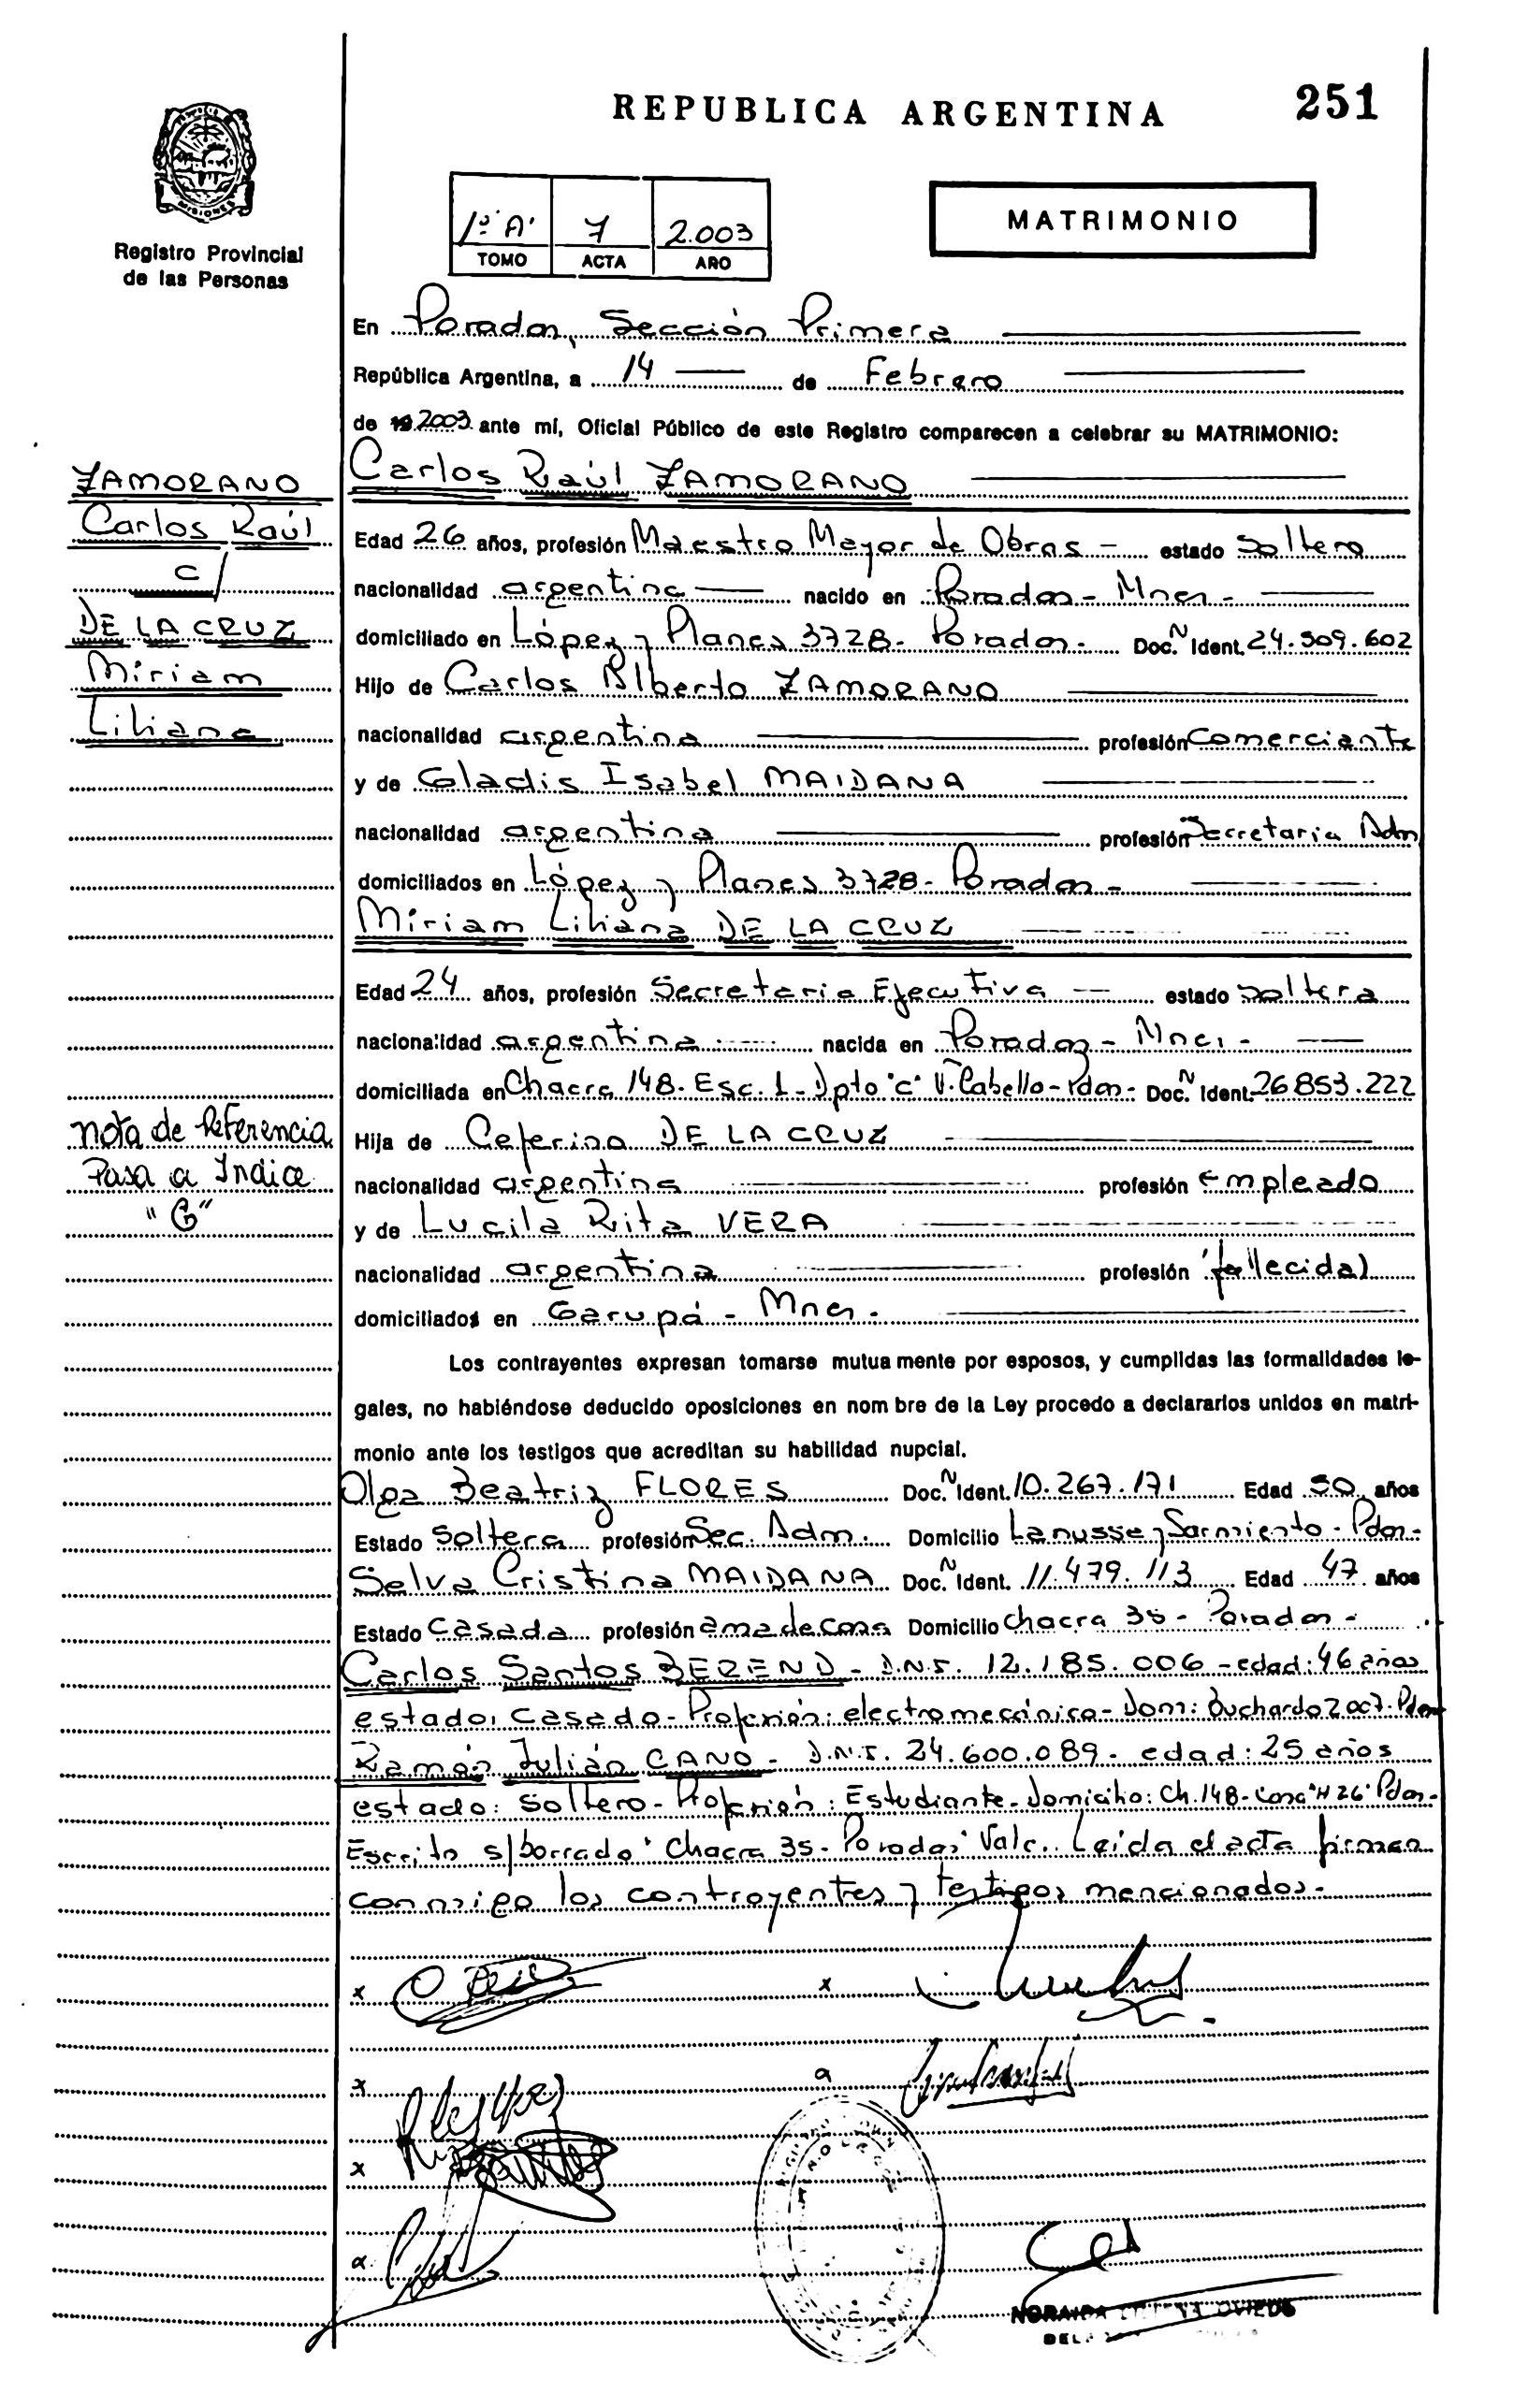 REPUBLICA ARGENTINA
251
MISIONES
Registro Provincial
de las Personas
1º "A" 7 2.003
TOMO ACTA AÑO
MATRIMONIO
En Posadas, Sección Primera
República Argentina, a 14 de Febrero
de 2003 ante mí, Oficial Público de este Registro comparecen a celebrar su MATRIMONIO:
ZAMORANO
Carlos Raúl
c/
DE LA CRUZ
Miriam
Liliana
Carlos Raúl ZAMORANO
Edad 26 años, profesión Maestro Mayor de Obras - estado soltero
nacionalidad argentina nacido en Posadas - Mnes -
domiciliado en López y Planes 3728 - Posadas - Doc. N Ident. 24.509.602
Hijo de Carlos Alberto ZAMORANO
nacionalidad argentina profesión Comerciante
y de Gladis Isabel MAIDANA
nacionalidad argentina profesión Secretaria Adm
domiciliados en López y Planes 3728 - Posadas -
Miriam Liliana DE LA CRUZ
Edad 24 años, profesión Secretaria Ejecutiva - estado soltera
nacionalidad argentina nacida en Posadas - Mnes -
domiciliada en Chacra 148 - Esc. 1 - Dpto "C" V. Cabello - Pdas - Doc. N Ident. 26.853.222
nota de Referencia
Pasa a Indice
"G"
Hija de Ceferino DE LA CRUZ
nacionalidad argentina profesión Empleado
y de Lucila Rita VERA
nacionalidad argentina profesión (fallecida)
domiciliados en Garupá - Mnes -
Los contrayentes expresan tomarse mutua mente por esposos, y cumplidas las formalidades le-
gales, no habiéndose deducido oposiciones en nom bre de la Ley procedo a declararlos unidos en matri-
monio ante los testigos que acreditan su habilidad nupcial.
Olga Beatriz FLORES Doc. N Ident. 10.267.171 Edad 50 años
Estado soltera profesión Sec. Adm. Domicilio Lanusse y Sarmiento - Pdas -
Selva Cristina MAIDANA Doc. N Ident. 11.479.113 Edad 47 años
Estado Casada profesión ama de casa Domicilio Chacra 35 - Posadas -
Carlos Santos BEREND - D.N.I. 12.185.006 - edad: 46 años
estado: Casado - Profesión: electromecánico - Dom: Buchardo 2007 - Pdas
Ramón Julián CANO - D.N.I. 24.600.089 - edad: 25 años
estado: soltero - Profesión: Estudiante - Domicilio: Ch. 148 - Casa "H 26" Pdas -
Escrito s/borrado "Chacra 35 - Posadas" Vale.. Leída el acta firman
conmigo los contrayentes y testigos mencionados -
x x
x a
x
a
OVIEDO